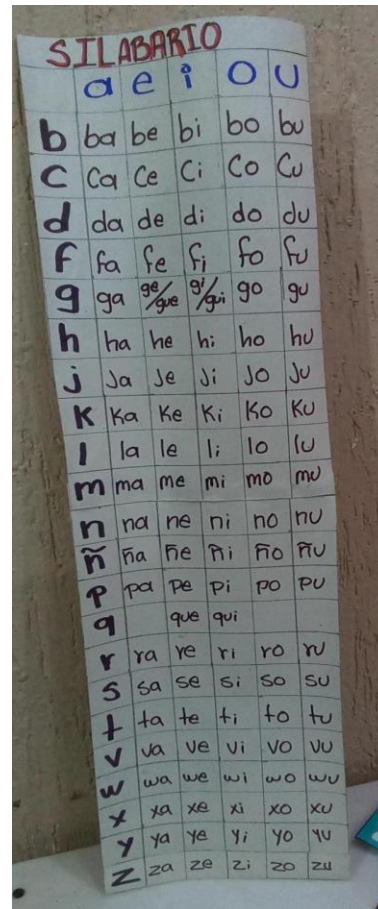 SILABARIO
a e i o u
b ba be bi bo bu
c ca ce ci co cu
d da de di do du
f fa fe fi fo fu
g ga ge/gue gi/gui go gu
h ha he hi ho hu
j Ja Je Ji Jo Ju
K Ka Ke Ki Ko Ku
l la le li lo lu
m ma me mi mo mu
n na ne ni no nu
ñ ña ñe ñi ño ñu
p pa pe pi po pu
q que qui
r ra re ri ro ru
s sa se si so su
t ta te ti to tu
v va ve vi vo vu
w wa we wi wo wu
x xa xe xi xo xu
y ya ye yi yo yu
z za ze zi zo zu